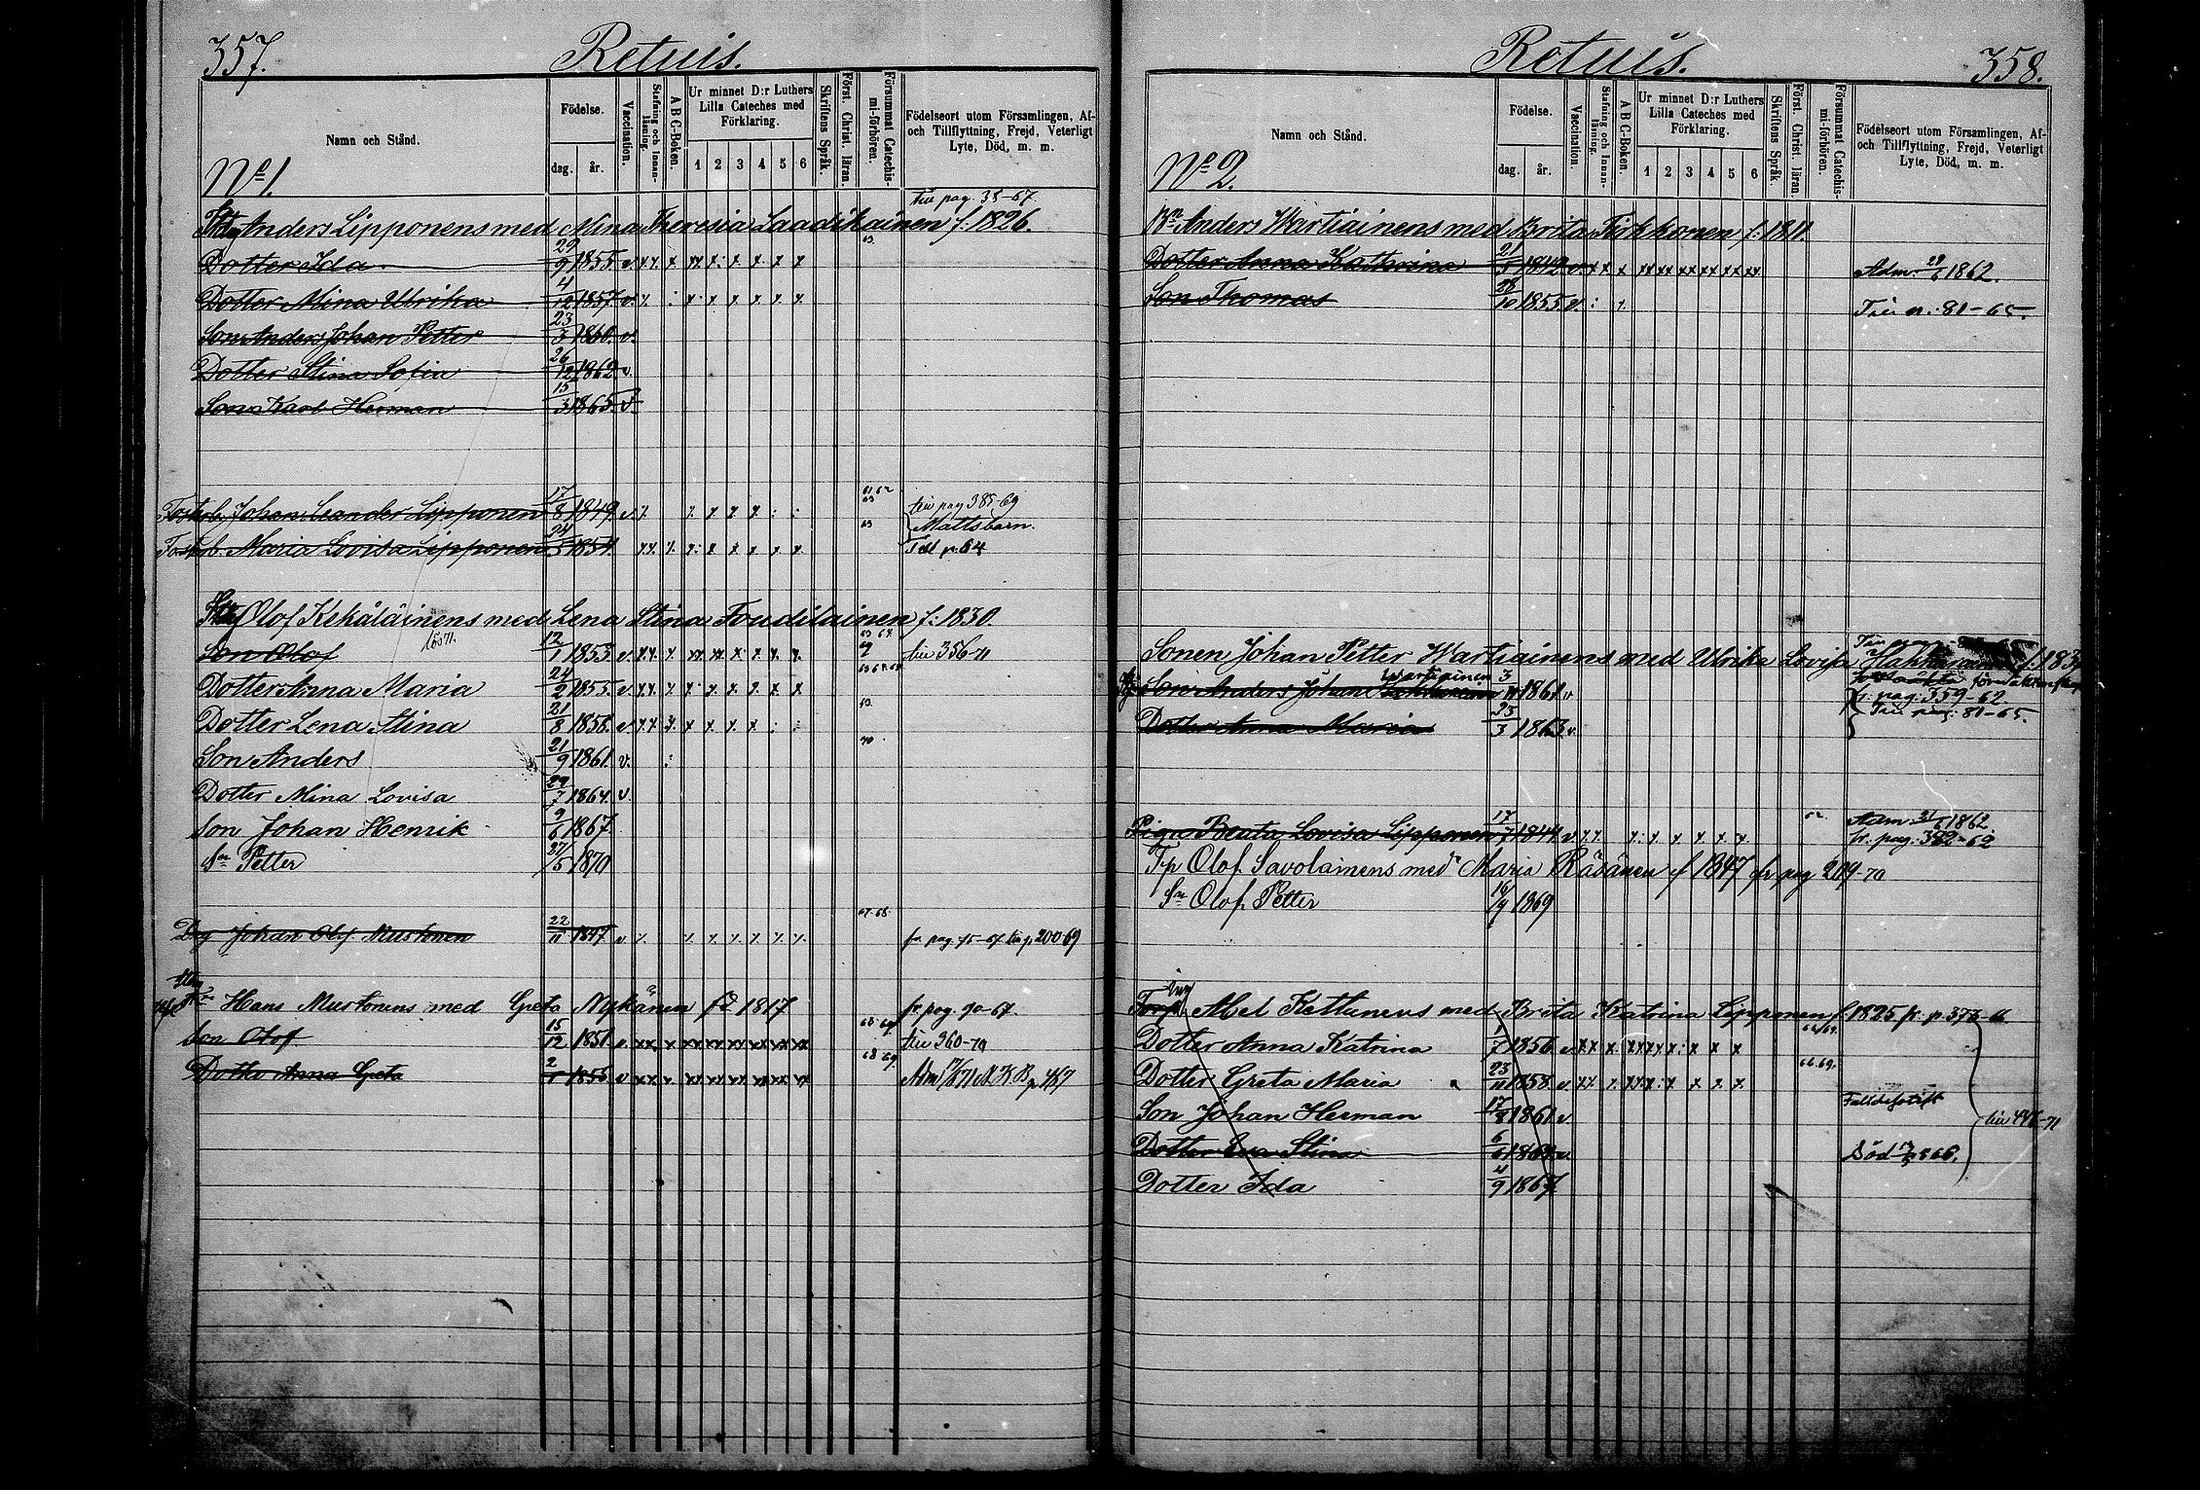 357. Retuis.
Namn och Stånd.
Födelse.
dag. år.
Vaccination.
Stafning och Innan-läsning.
A B C-Boken.
Ur minnet D:r Luthers Lilla Cateches med Förklaring.
1 2 3 4 5 6
Skriftens Språk.
Först. Christ. läran.
Försummat Catechis-mi-förhören.
Födelseort utom Församlingen, Af- och Tillflyttning, Frejd, Veterligt Lyte, Död, m. m.
No 1.
Anders Lipponens med Mina Theresia Laadikainen f. 1826. pag. 38-67
Dotter Ida 29/9 1855 v. 63.
Dotter Mina Ulrika 4/12 1857 v.
Son Anders Johan Petter 23/3 1860. v.
Dotter Stina Sofia 26/12 1862 v.
Son Karl Herman 15/3 1865 v.
Johan Leander Lipponen 17/8 1849 v. pag 385-69
Mattsbarn.
Maria Lovisa Lipponen 24/5 1854 63 p. 64
Olof Kekäläinens med Lena Stina Toudilainen f: 1830.
Son Olof 12/1 1853 v. 356-71
Dotter Anna Maria 24/2 1855 v.
Dotter Lena Stina 21/8 1858. v 63.
Son Anders 21/9 1861. v. 70
Dotter Mina Lovisa 22/7 1864. v.
Son Johan Henrik 9/6 1867.
Sn Petter 27/5 1870
Johan Olof Mustonen 22/11 1847 v 67.68. fr pag. 75-67 p. 200-69
Hans Mustonens med Greta Nykänen fd 1817 fr pag. 90-67.
Son Olof 15/12 1851. v. 68 69 360-70
Dotter Anna Greta 2/1 1855 v 68 69
Retuis. 358.
Namn och Stånd.
Födelse.
dag. år.
Vaccination.
Stafning och Innan-läsning.
A B C-Boken.
Ur minnet D:r Luthers Lilla Cateches med Förklaring.
1 2 3 4 5 6
Skriftens Språk.
Först. Christ. läran.
Försummat Catechis-mi-förhören.
Födelseort utom Församlingen, Af- och Tillflyttning, Frejd, Veterligt Lyte, Död, m. m.
No 2.
Anders Wartiainens med Brita Tirkkonen f. 1811.
Dotter Anna Kathrina 1842 v. Adm. 1862.
Son Thomas 28/10 1855. v. 81-65.
Sonen Johan Petter Wartiainens med Ulrika Lovisa
Son Anders Johan Wartiainen 1861 v
pag: 359-62
Dotter Anna Maria 25/3 1863 v. 81-65.
Piga Beata Lovisa Lipponen 17/7 1844 v. Adm. 1862
fr. pag: 382-62
Tp Olof Savolainens med Maria Räsänen f 1847 fr pag 209-70
Sn Olof Petter 1869
Abel Kettunens med Brita Katrina Lipponen f. 1825 fr. p. 373-66
Dotter Anna Katrina 1/7 1856 v.
Dotter Greta Maria 23/11 1858 v. 66.69.
Son Johan Herman 17/8 1861 v.
Dotter Eva Stina 6/6 1864 v. Död
Dotter Ida 4/9 1867